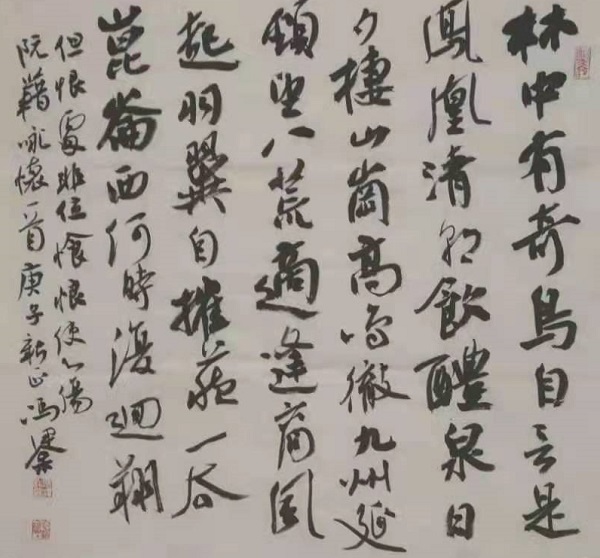 林中有奇鳥自言是
鳳凰清朝飲醴泉日
夕棲山崗高鳴徹九州延
頸望八荒適逢商風
起羽翼自摧藏一去
崑崙西何時復迴翔
但恨處非位愴恨使心傷
阮藉咏懷一首庚子新正馮